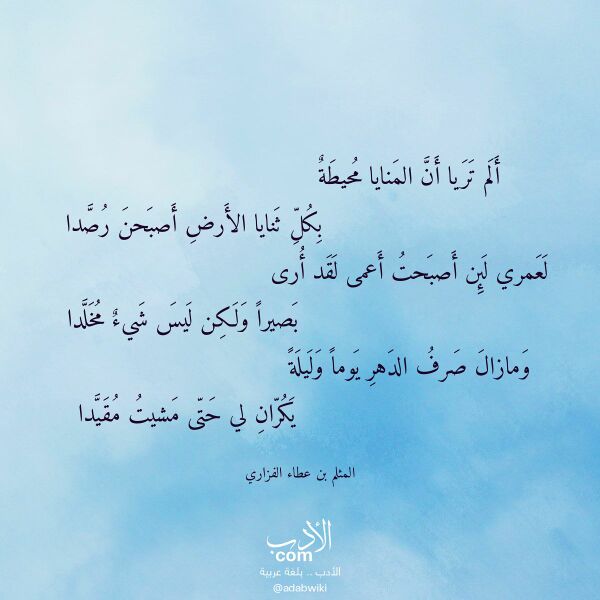 أَلَم تَرَيا أَنَّ المَنايا مُحيطَةٌ
بِكُلِّ ثَنايا الأَرضِ أَصبَحنَ رُصَّدا
لَعَمري لَئِن أَصبَحتُ أَعمى لَقَد أُرى
بَصيراً وَلَكِن لَيسَ شَيءٌ مُخَلَّدا
وَمازالَ صَرفُ الدَهرِ يَوماً وَلَيلَةً
يَكُرّانِ لي حَتّى مَشيتُ مُقَيَّدا
المثلم بن عطاء الفزاري
الأدب
com
الأدب .. بلغة عربية
@adabwiki